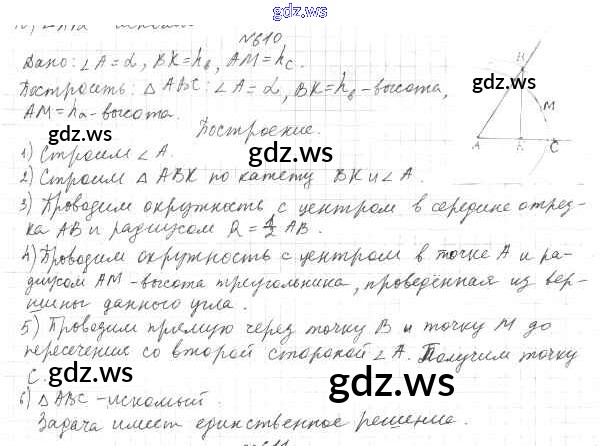 gdz.ws
№610
Дано: ∠A = α, BK = hв, AM = hc.
Построить: △ABC: ∠A = α, BK = hв - высота,
AM = ha - высота.
gdz.ws
Построение.
1) Строим ∠A.
gdz.ws
2) Строим △ABK по катету BK и ∠A.
3) Проводим окружность с центром в середине отрез-
ка AB и радиусом R = 1/2 AB.
gdz.ws
4) Проводим окружность с центром в точке A и ра-
диусом AM - высота треугольника, проведённая из вер-
шины данного угла.
gdz.ws
gdz.ws
5) Проводим прямую через точку B и точку M до
пересечение со второй стороной ∠A. Получим точку
C.
gdz.ws
gdz.ws
6) △ABC - искомый.
Задача имеет единственное решение.
gdz.ws
B
M
A
C